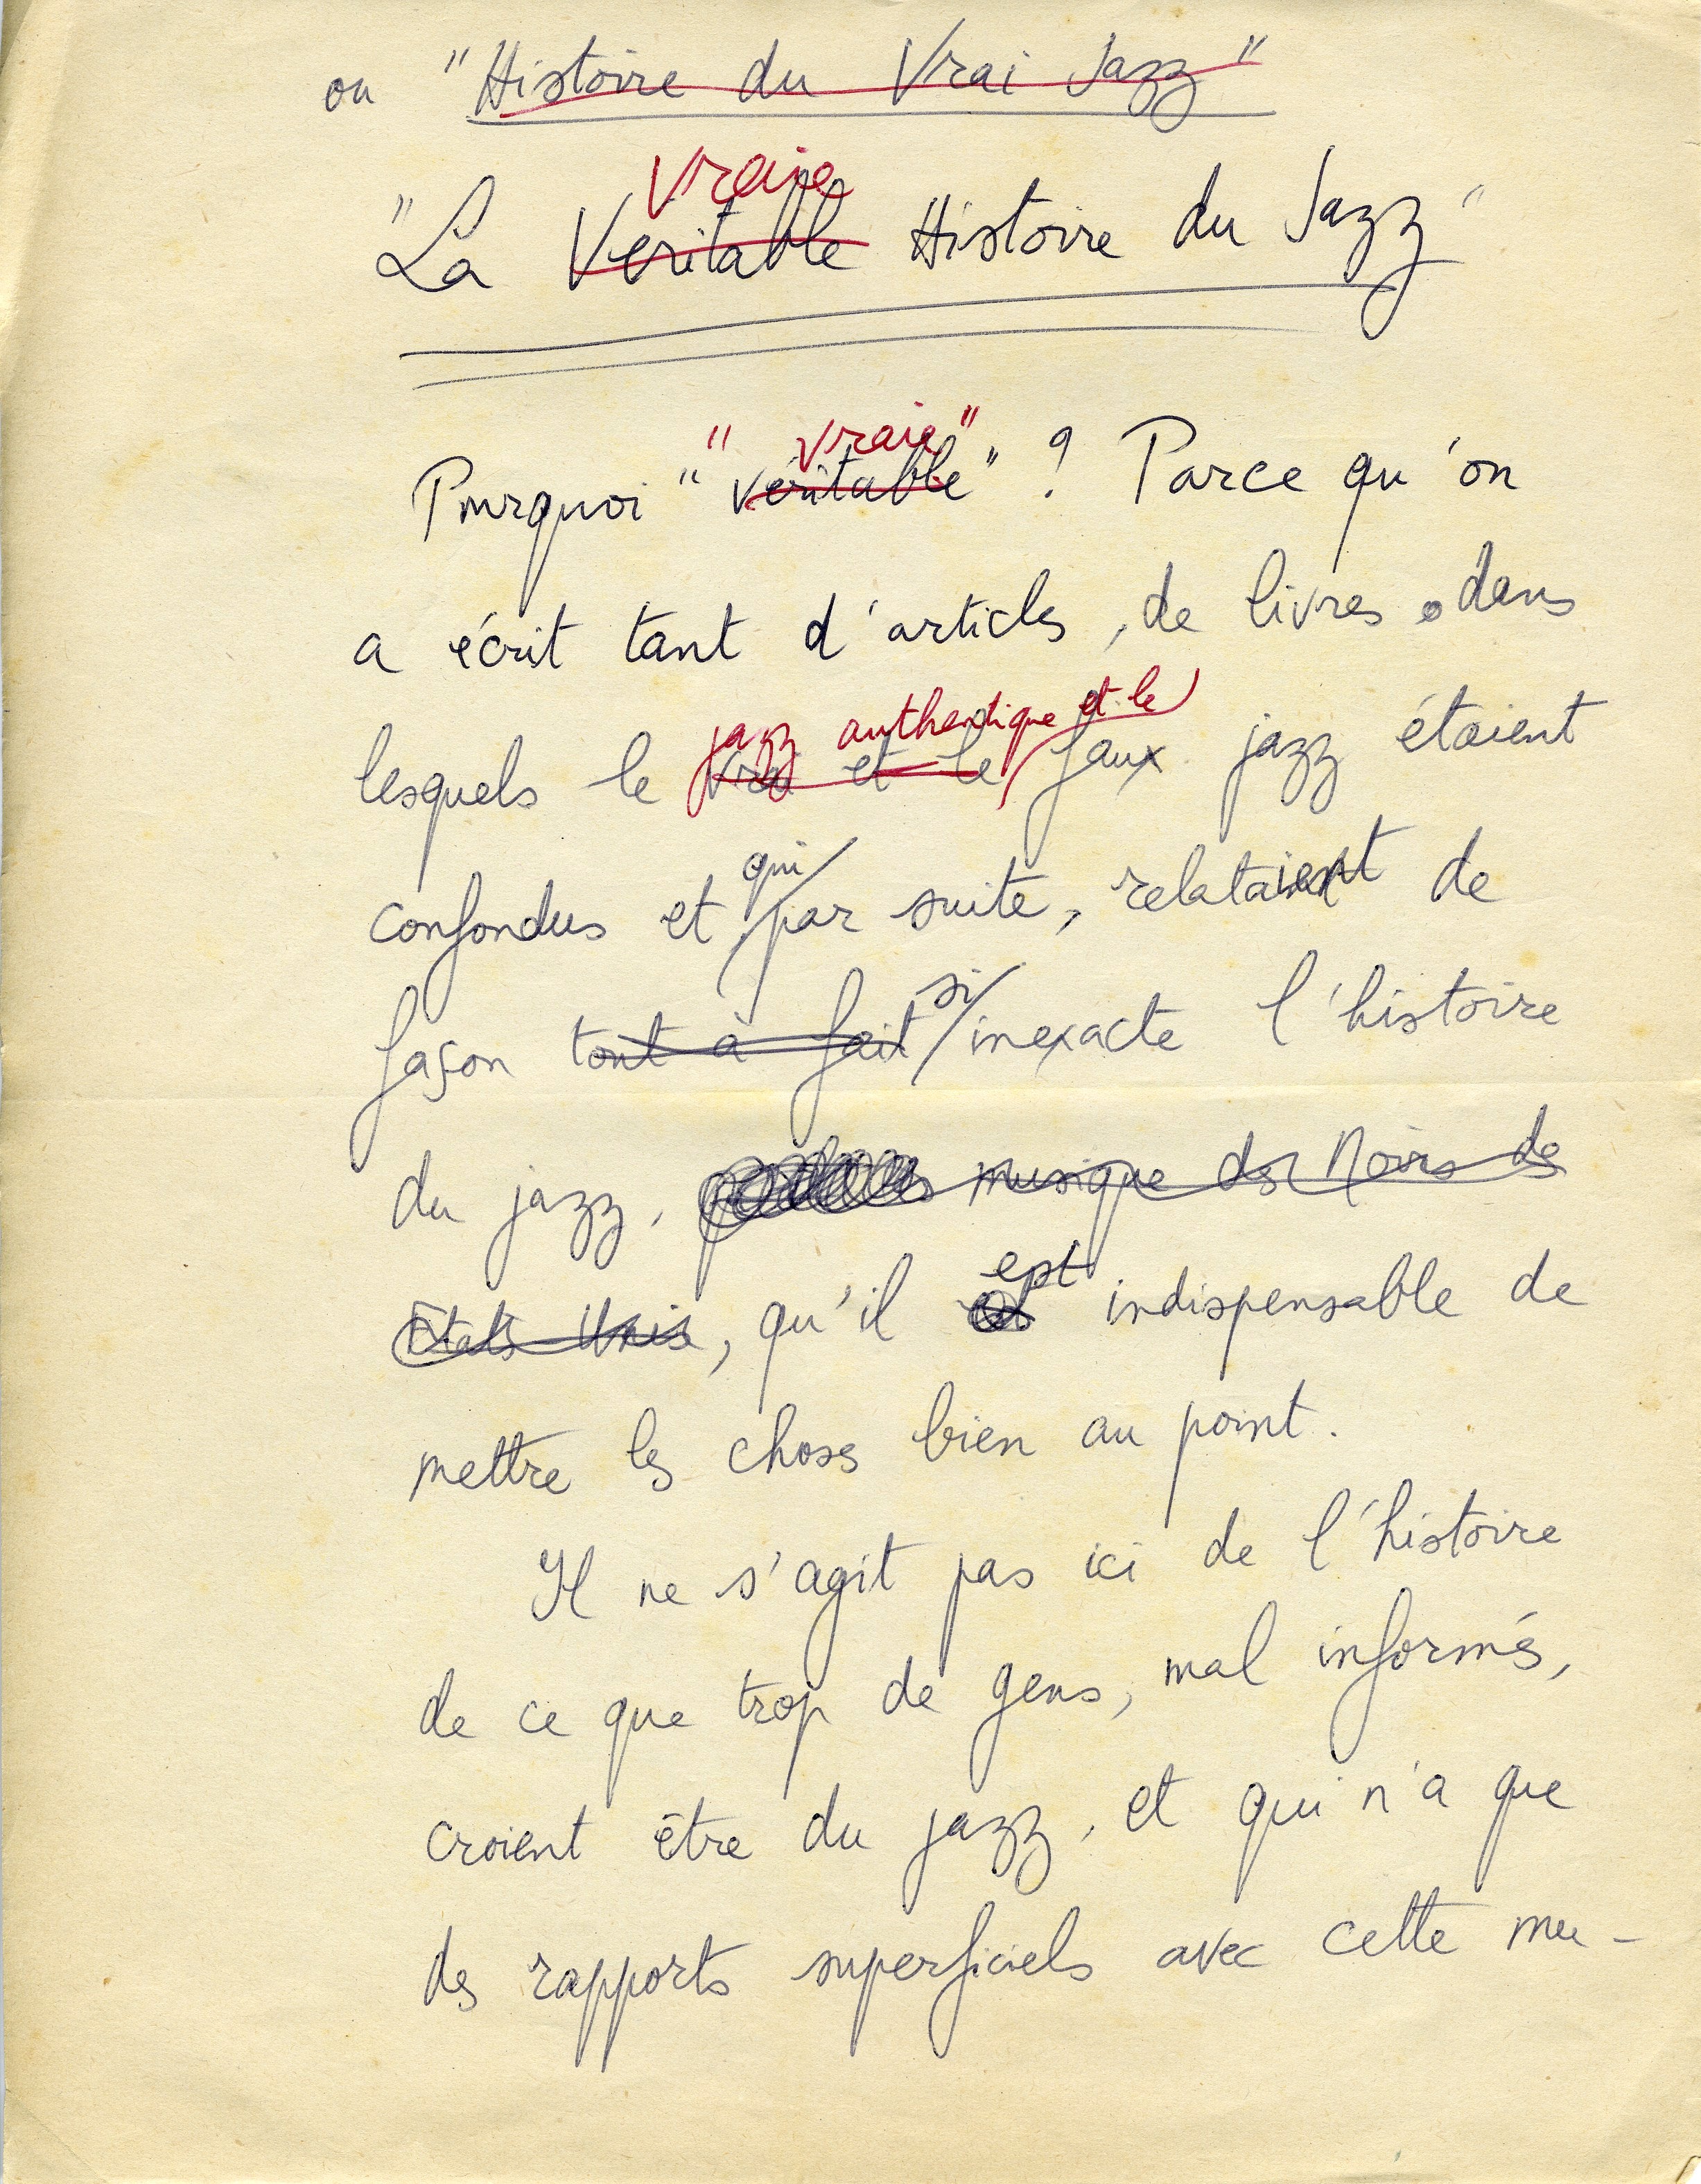 ou "Histoire du Vrai Jazz"
vraie
"La Véritable Histoire du Jazz"
" vraie "
Pourquoi "véritable" ? Parce qu'on
a écrit tant d'articles, de livres, dans
jazz authentique et le
lesquels le vrai et le faux jazz étaient
qui
confondus et par suite, relataient de
si
façon tout à fait inexacte l'histoire
du jazz, musique des Noirs des
États Unis, qu'il est indispensable de
mettre les choses bien au point.
Il ne s'agit pas ici de l'histoire
de ce que trop de gens, mal informés,
croient être du jazz, et qui n'a que
des rapports superficiels avec cette mu-